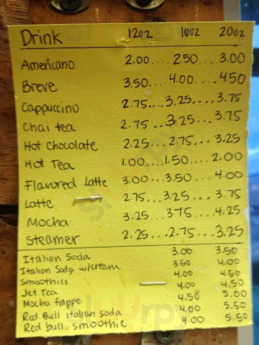 Drink 12oz 16oz 20oz
Americano 2.00...2.50...3.00
Breve 3.50....4.00....4.50
Cappuccino 2.75....3.25....3.75
Chai tea 2.75...3.25...3.75
Hot Chocolate 2.25...2.75...3.25
Hot Tea 1.00...1.50....2.00
Flavored Latte 3.00...3.50...4.00
Latte 2.75...3.25...3.75
Mocha 3.25...3.75...4.25
Steamer 2.25...2.75...3.25
Italian Soda 3.00 3.50
Italian Soda w/cream 3.50 4.00
Smoothies 4.00 4.50
Jet Tea 4.00 4.50
Mocha frappe 4.50 5.00
Red Bull italian soda 4.00 5.50
Red bull smoothie 4.00 5.50